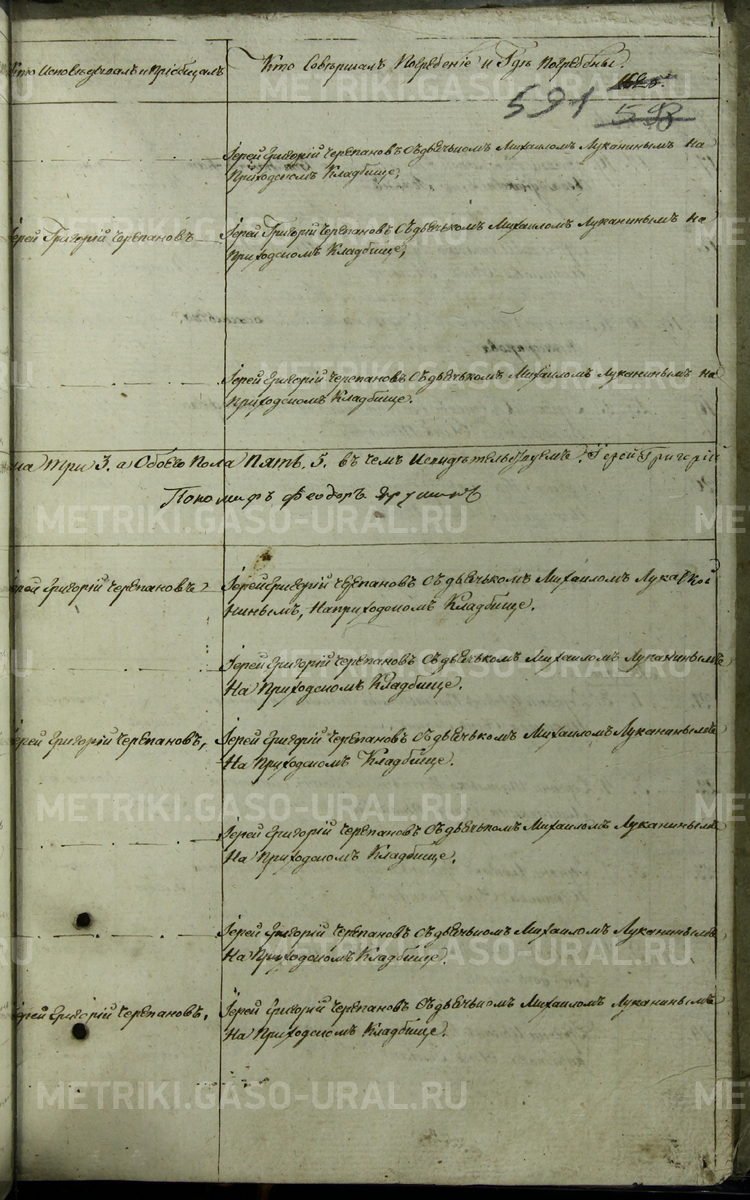 Кто Исповедывалъ и Приобщалъ
Кто Совершалъ Погребение и Гдѣ Погребены.
591
Іерей Григорій Черепановъ Съ дьячькомъ Михаиломъ Луканинымъ На
Приходскомъ Кладбище,
Іерей Григорій Черепановъ
Іерей Григорій Черепановъ Съ дьячькомъ Михаиломъ Луканинымъ На
Приходскомъ Кладбище,
Іерей Григорій Черепановъ Съ дьячькомъ Михаиломъ Луканинымъ На
Приходскомъ Кладбище.
на три 3. а Обоего Пола Пять. 5. въ чемъ И свидѣтельствуемъ: Іерей Григорій
Пономарь Феодоръ
Іерей Григорій Черепановъ
Іерей Григорій Черепановъ Съ дьячькомъ Михаиломъ Лука
нинымъ, На приходскомъ Кладбище.
Іерей Григорій Черепановъ Съ дьячькомъ Михаиломъ Луканинымъ
На Приходскомъ Кладбище.
Іерей Григорій Черепановъ,
Іерей Григорій Черепановъ Съ дьячькомъ Михаиломъ Луканинымъ
На Приходскомъ Кладбище.
Іерей Григорій Черепановъ Съ дьячькомъ Михаиломъ Луканинымъ
На Приходскомъ Кладбище.
Іерей Григорій Черепановъ Съ дьячькомъ Михаиломъ Луканинымъ
На Приходскомъ Кладбище.
Іерей Григорій Черепановъ.
Іерей Григорій Черепановъ Съ дьячькомъ Михаиломъ Луканинымъ
На Приходскомъ Кладбище.
METRIKI.GASO-URAL.RU